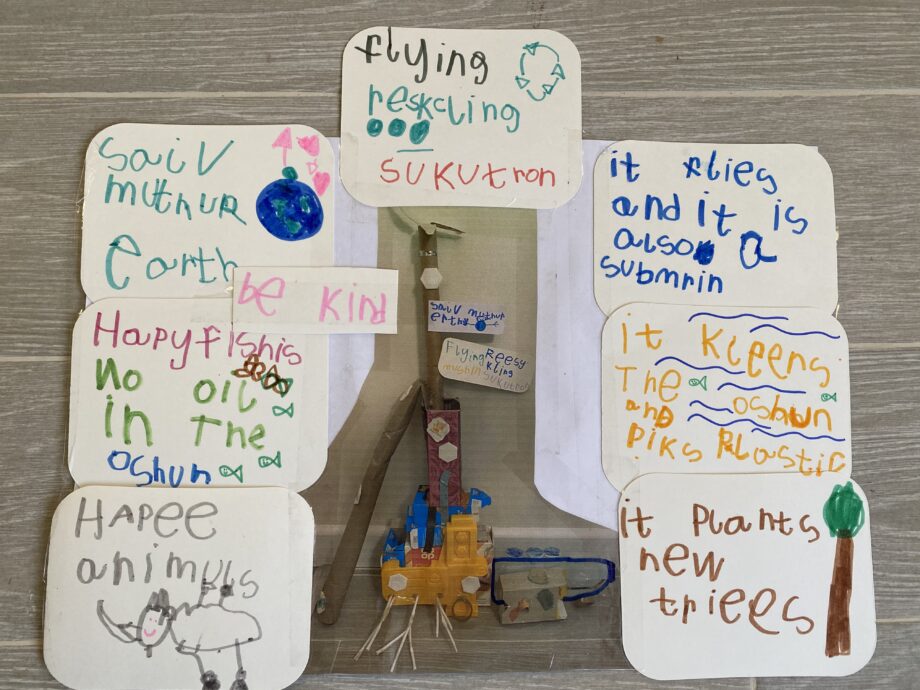 flying
reskcling
sukutron
saiv
muthur
earth
be kind
Hapyfishis
No oil
in The
oshun
HAPee
animuls
it flies
and it is
also a
submrin
it kleens
The oshun
and
piks plastic
it plants
new
triees
saiv muthur
erth
Flying Reesy
kling
sukutron